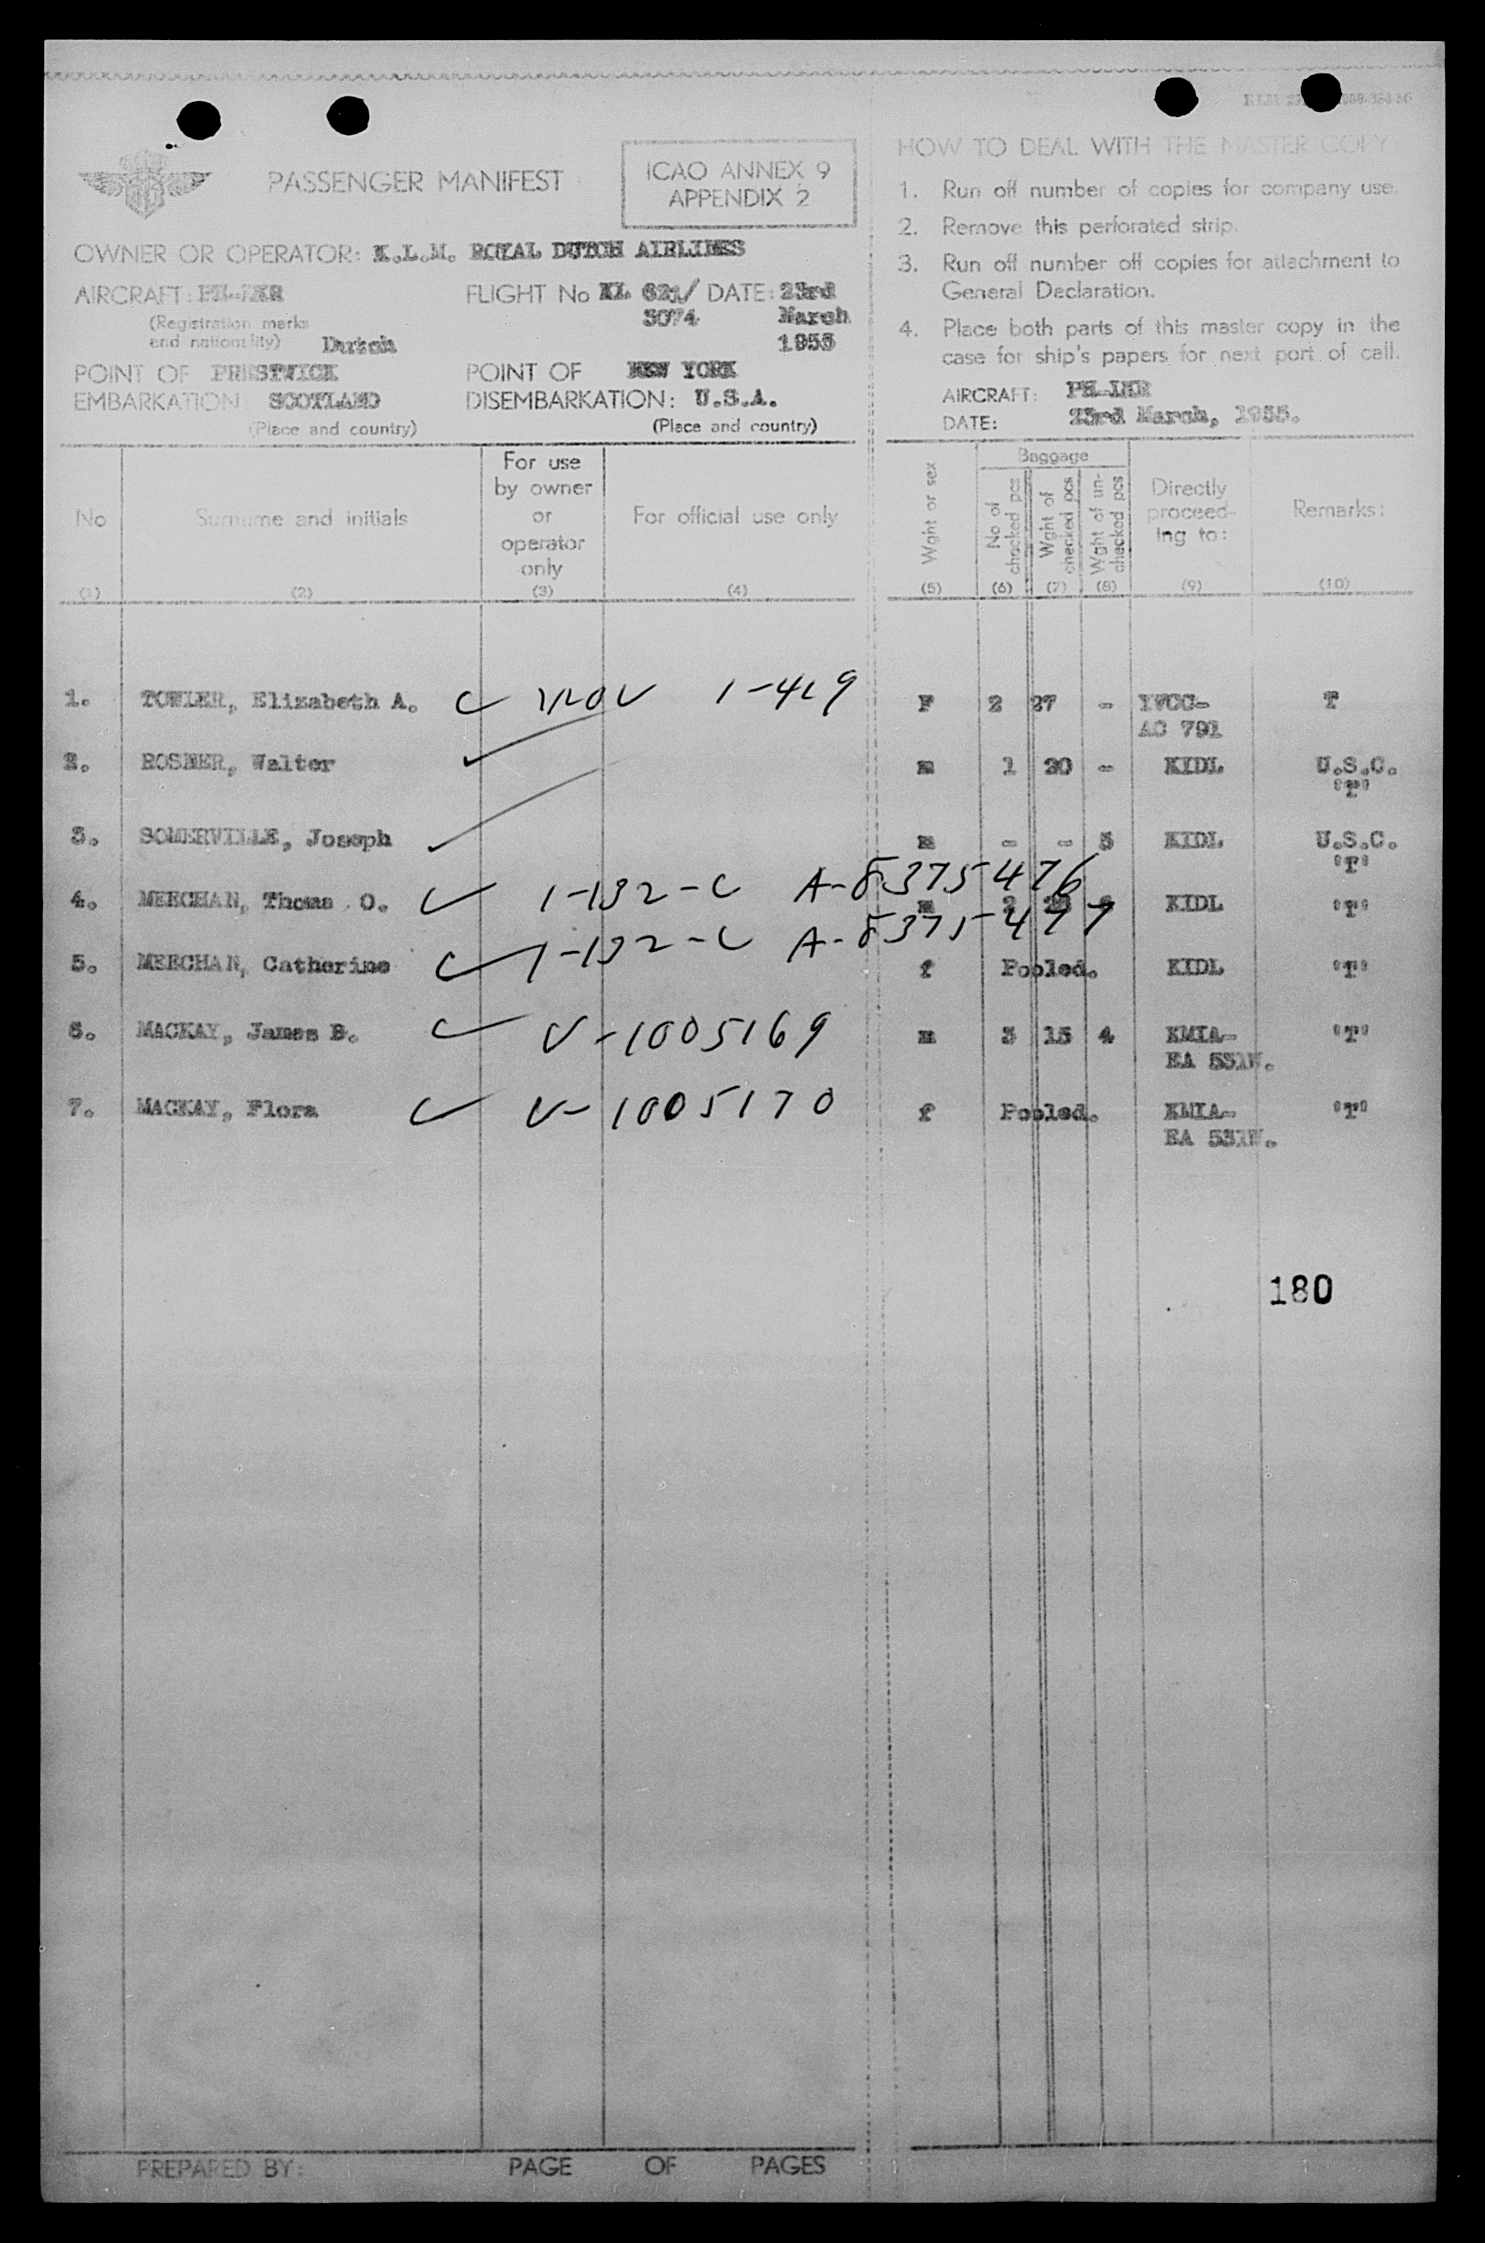 PASSENGER MANIFEST
ICAO ANNEX 9
APPENDIX 2
OWNER OR OPERATOR: K.L.M. ROYAL DUTCH AIRLINES
AIRCRAFT:
FLIGHT No KL 621/ DATE: 23rd
(Registration marks
3074
March
and nationality) Dutch
1955
POINT OF PRESTWICK
POINT OF NEW YORK
EMBARKATION SCOTLAND
DISEMBARKATION: U.S.A.
(Place and country)
(Place and country)
HOW TO DEAL WITH THE MASTER COPY
1. Run off number of copies for company use.
2. Remove this perforated strip.
3. Run off number off copies for attachment to
General Declaration.
4. Place both parts of this master copy in the
case for ship's papers for next port of call.
AIRCRAFT:
DATE: 23rd March, 1955.
No
Surname and initials
For use
by owner
or
operator
only
For official use only
Wght or sex
Baggage
No of
checked pcs
Wght of
checked pcs
Wght of un-
checked pcs
Directly
proceed-
ing to:
Remarks:
(1) (2) (3) (4) (5) (6) (7) (8) (9) (10)
1. TOWLER, Elizabeth A. 1-419 F 2 27 - YVCC- T
AC 791
2. ROSNER, Walter m 1 20 - KIDL U.S.C.
"T"
3. SOMERVILLE, Joseph m - - 5 KIDL U.S.C.
"T"
4. MEECHAN, Thomas O. 1-132-C A-8375476 m 2 KIDL "T"
5. MEECHAN, Catherine 1-132-C A-8375477 f Pooled. KIDL "T"
6. MACKAY, James B. V-1005169 m 3 15 4 KMIA- "T"
EA 531N.
7. MACKAY, Flora V-1005170 f Pooled. KMIA- "T"
EA 531N.
180
PREPARED BY: PAGE OF PAGES